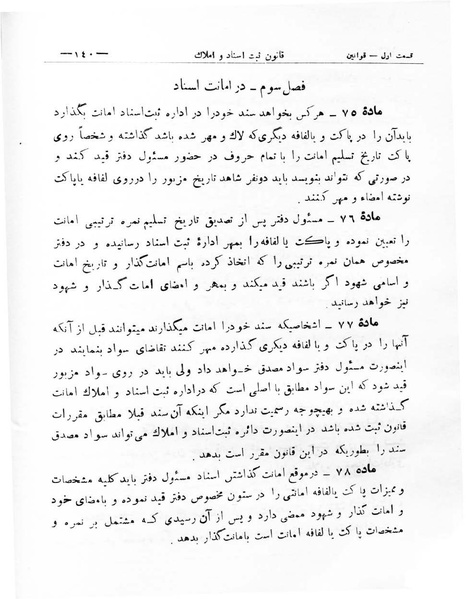 قسمت اول — قوانین
قانون ثبت اسناد و املاك
— ١٤٠ —
فصل سوم — در امانت اسناد
مادهٔ ۷۵ — هرکس بخواهد سند خودرا در اداره ثبت‌اسناد امانت بگذارد
بایدآن را در پاکت و یالفافه دیگری‌که لاك و مهر شده باشد گذاشته و شخصاً روی
پاکت تاریخ تسلیم امانت را با تمام حروف در حضور مسئول دفتر قید کند و
در صورتی که نتواند بنویسد باید دونفر شاهد تاریخ مزبور را درروی لفافه یاپاکت
نوشته امضاء و مهر کنند .
مادهٔ ۷۶ — مسئول دفتر پس از تصدیق تاریخ تسلیم نمره ترتیبی امانت
را تعیین نموده و پاکت یا لفافه‌را بمهر ادارهٔ ثبت اسناد رسانیده و در دفتر
مخصوص همان نمره ترتیبی‌را که اتخاذ کرده باسم امانت‌گذار و تاریخ امانت
و اسامی شهود اگر باشند قید میکند و بمهر و امضای امات گذار و شهود
نیز خواهد رسانید .
مادهٔ ۷۷ — اشخاصیکه سند خودرا امانت میگذارند میتوانند قبل از آنکه
آنها را در پاکت و یا لفافه دیگری گذارده مهر کنند تقاضای سواد بنمایند در
اینصورت مسئول دفتر سواد مصدق خواهد داد ولی باید در روی سواد مزبور
قید شود که این سواد مطابق با اصلی است که دراداره ثبت اسناد و املاك امانت
گذاشته شده و بهیچوجه رسمیت ندارد مگر اینکه آن سند قبلا مطابق مقررات
قانون ثبت شده باشد در اینصورت دائره ثبت‌اسناد و املاك می‌تواند سواد مصدق
سند را بطوریکه در این قانون مقرر است بدهد .
ماده ۷۸ — درموقع امانت گذاشتن اسناد مسئول دفتر باید کلیه مشخصات
و ممیزات پاکت یالفافه امانتی را در ستون مخصوص دفتر قید نموده و بامضای خود
و امانت گذار و شهود ممضی دارد و پس از آن رسیدی که مشتمل بر نمره و
مشخصات پاکت یا لفافه امانت است بامانت‌گذار بدهد .